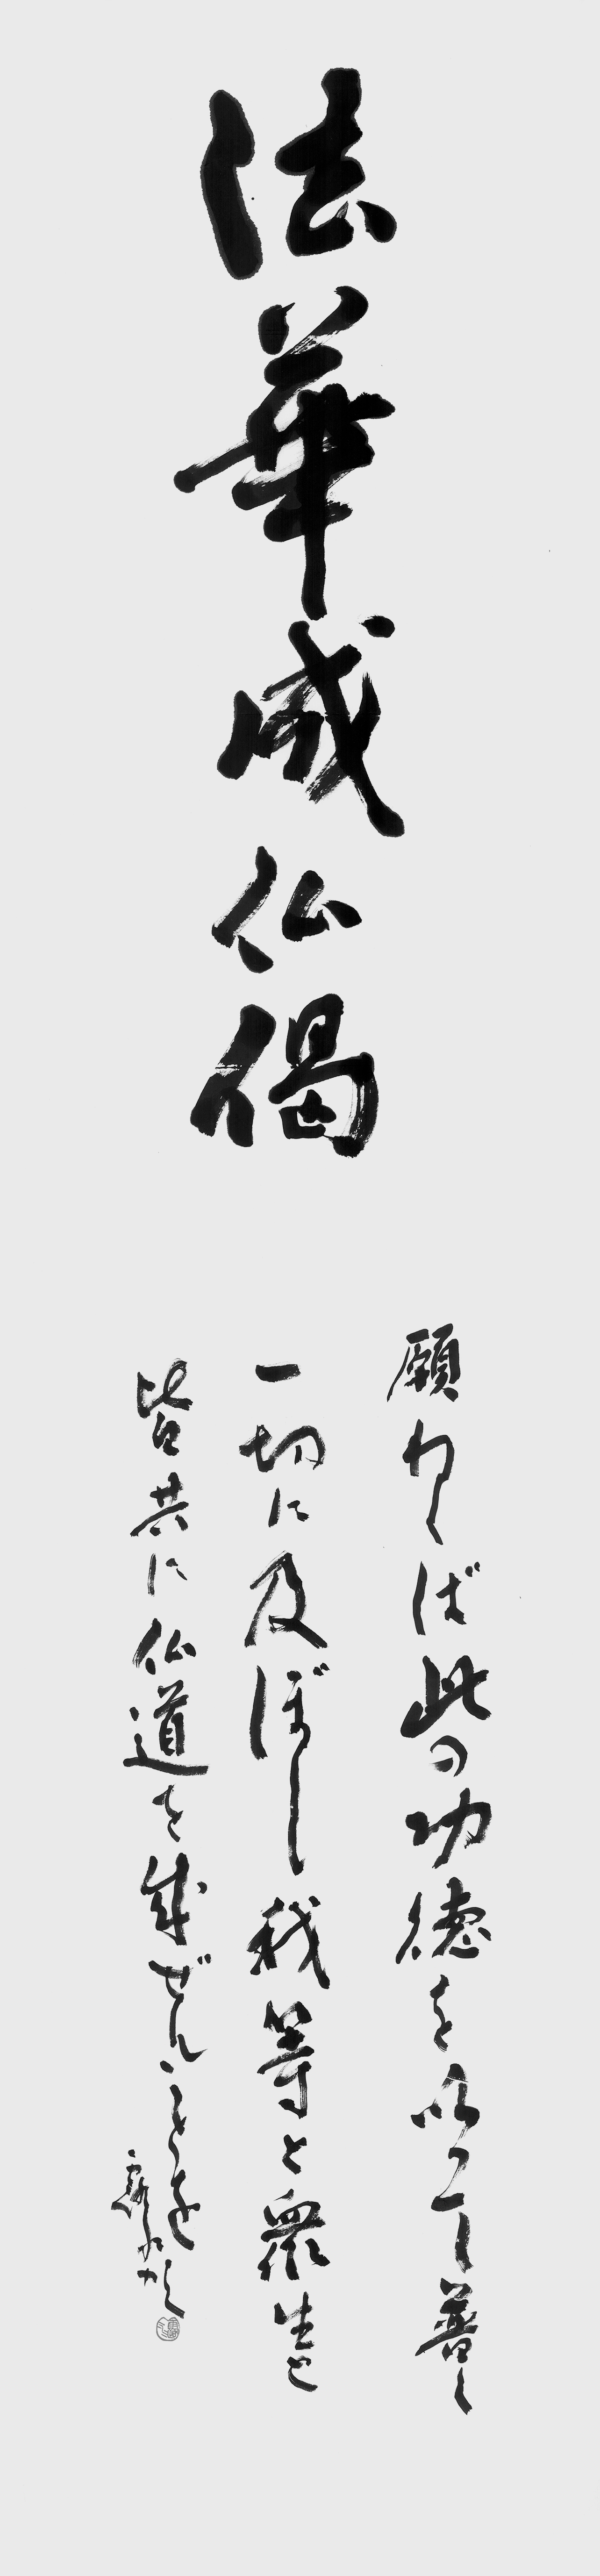 法華成仏偈
願わくば此の功徳を以って普く
一切に及ぼし我等と衆生と
皆共に仏道を成ぜんことを